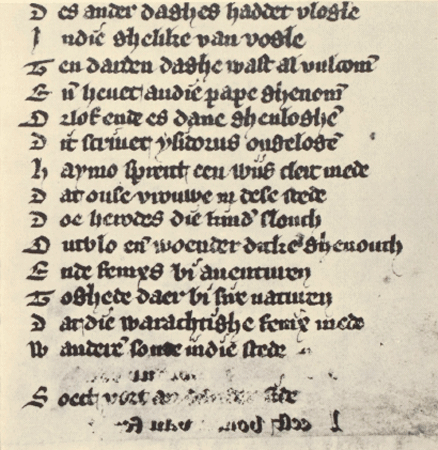 D es ander daghes haddet vlogle
I ndie ghelike van vogle
T en darden daghe wast al vulcom̄
E n̄ heuet andie pape ghenom̄
O rlof ende es dane gheuloghē
D it scriuet ysidorus ongelogē
H aymo spreict een wijs clerc mede
D at onse vrouwe in dese stede
D oe herodes die kind' slouch
O utvlo en̄ woender dicke ghenouch
E nde fenix bi auenturen
T oghede daer bi sire naturen
D at die warachtighe fenix mede
W andere sonne indie stede
S oect vort